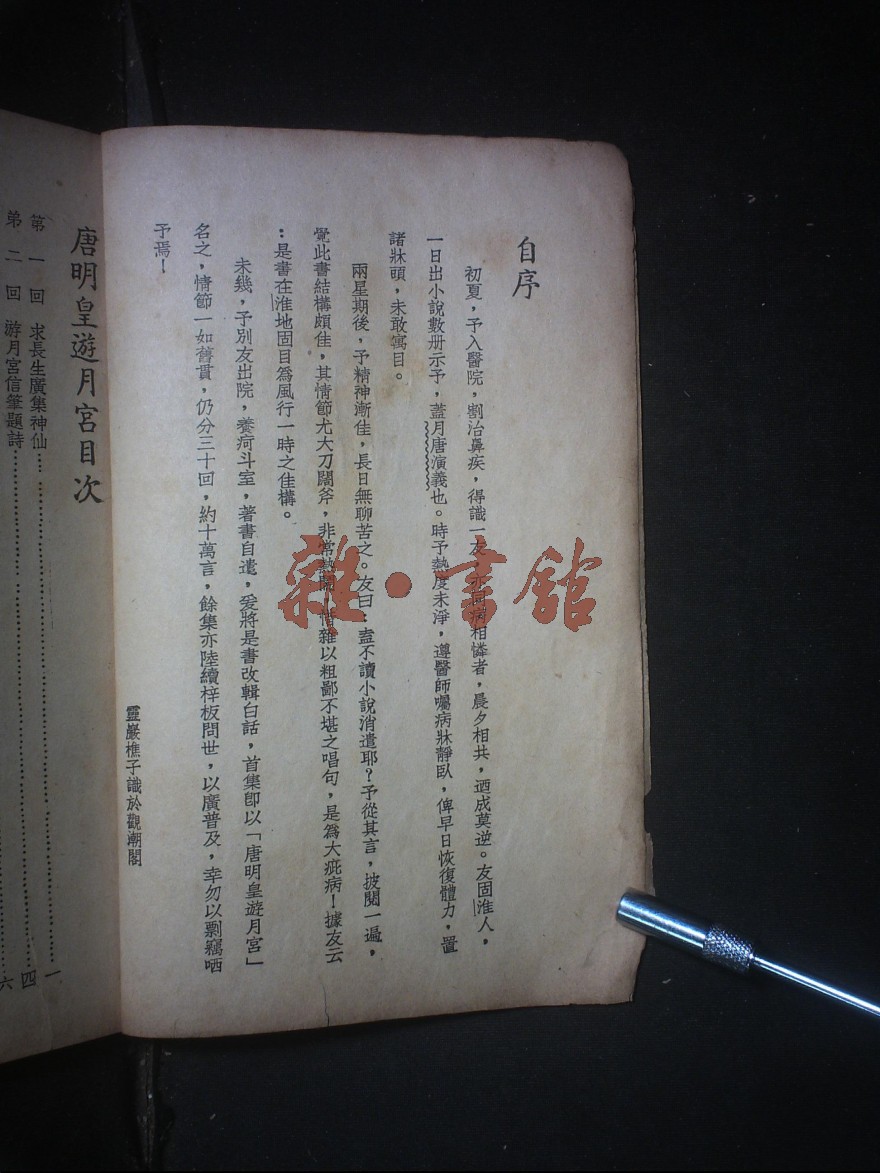 自序
初夏，予入醫院，割治鼻疾，得識一友，亦同病相憐者，晨夕相共，迺成莫逆。友固淮人，
一日出小說數册示予，蓋月唐演義也。時予熱度未淨，遵醫師囑病牀靜臥，俾早日恢復體力，置
諸牀頭，未敢寓目。
兩星期後，予精神漸佳，長日無聊苦之。友曰：盍不讀小說消遣耶？予從其言，披閱一遍，
覺此書結構頗佳，其情節尤大刀闊斧，非常熱鬧，惜雜以粗鄙不堪之唱句，是爲大疵病！據友云
：是書在淮地固目爲風行一時之佳構。
未幾，予別友出院，養疴斗室，著書自遣，爰將是書改輯白話，首集卽以「唐明皇遊月宮」
名之，情節一如舊貫，仍分三十回，約十萬言，餘集亦陸續梓板問世，以廣普及，幸勿以剽竊哂
予焉！
靈巖樵子識於觀潮閣
唐明皇遊月宮目次
第一回 求長生廣集神仙……………………一
第二回 游月宮信筆題詩……………………四
六
雜·書館